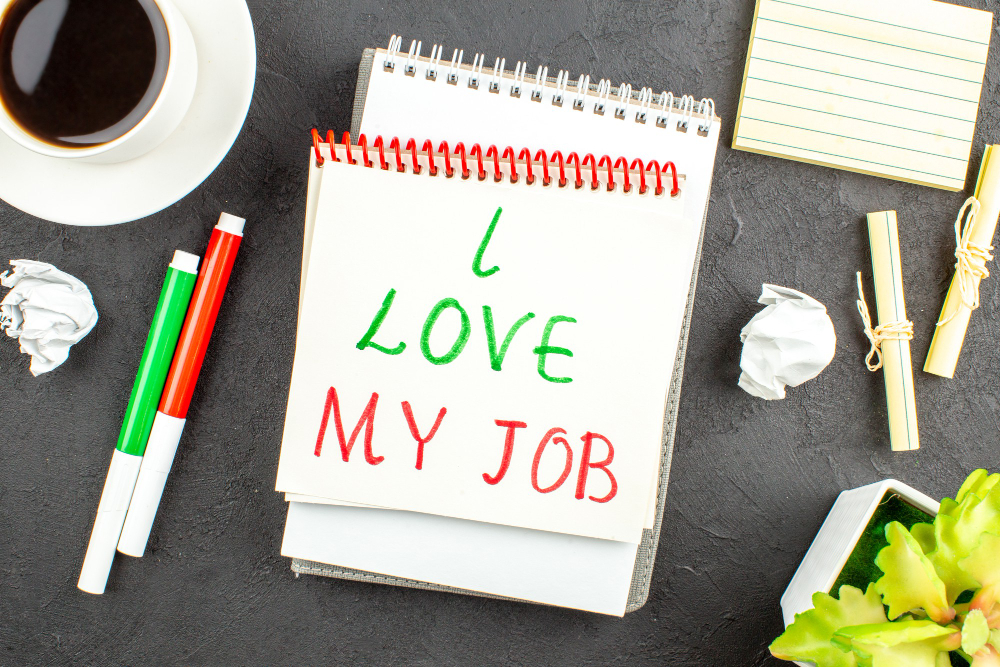 I
LOVE
MY JOB